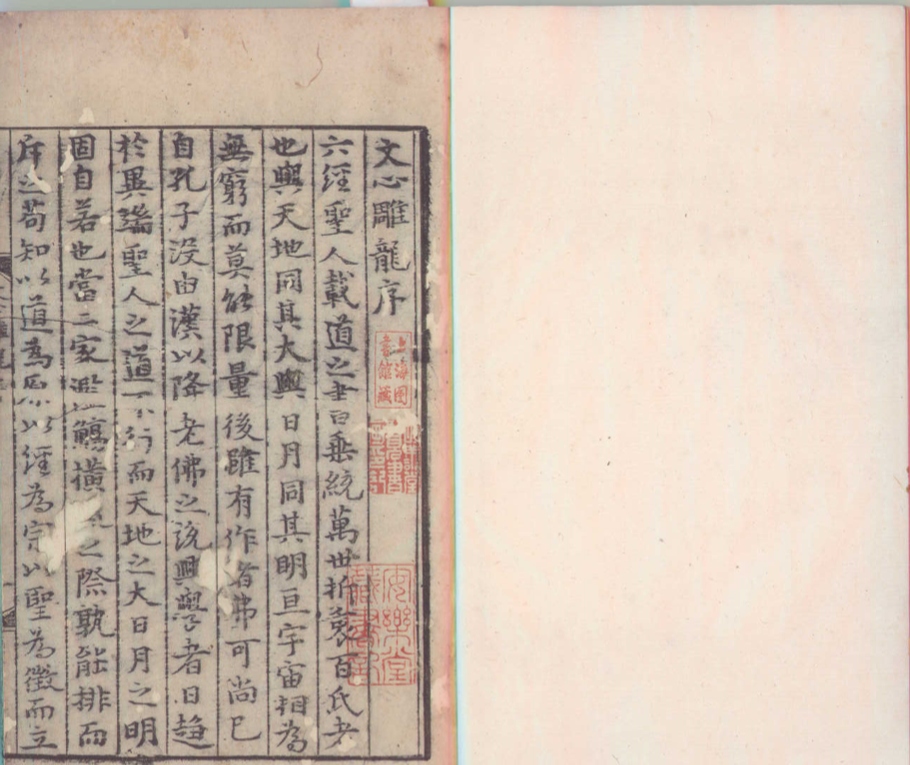 文心雕龍序
六經聖人載道之書垂統萬世折衷百氏者
也與天地同其大與日月同其明亘宇宙相為
無窮而莫能限量後雖有作者弗可尚已
自孔子沒由漢以降老佛之説興學者日趨
於異端聖人之道不行而天地之大日月之明
固自若也當二家濫觴橫之際孰能排而
斥之苟知以道為原以經為宗以聖為徵而立
上海圖
書館藏
安樂堂
藏書記